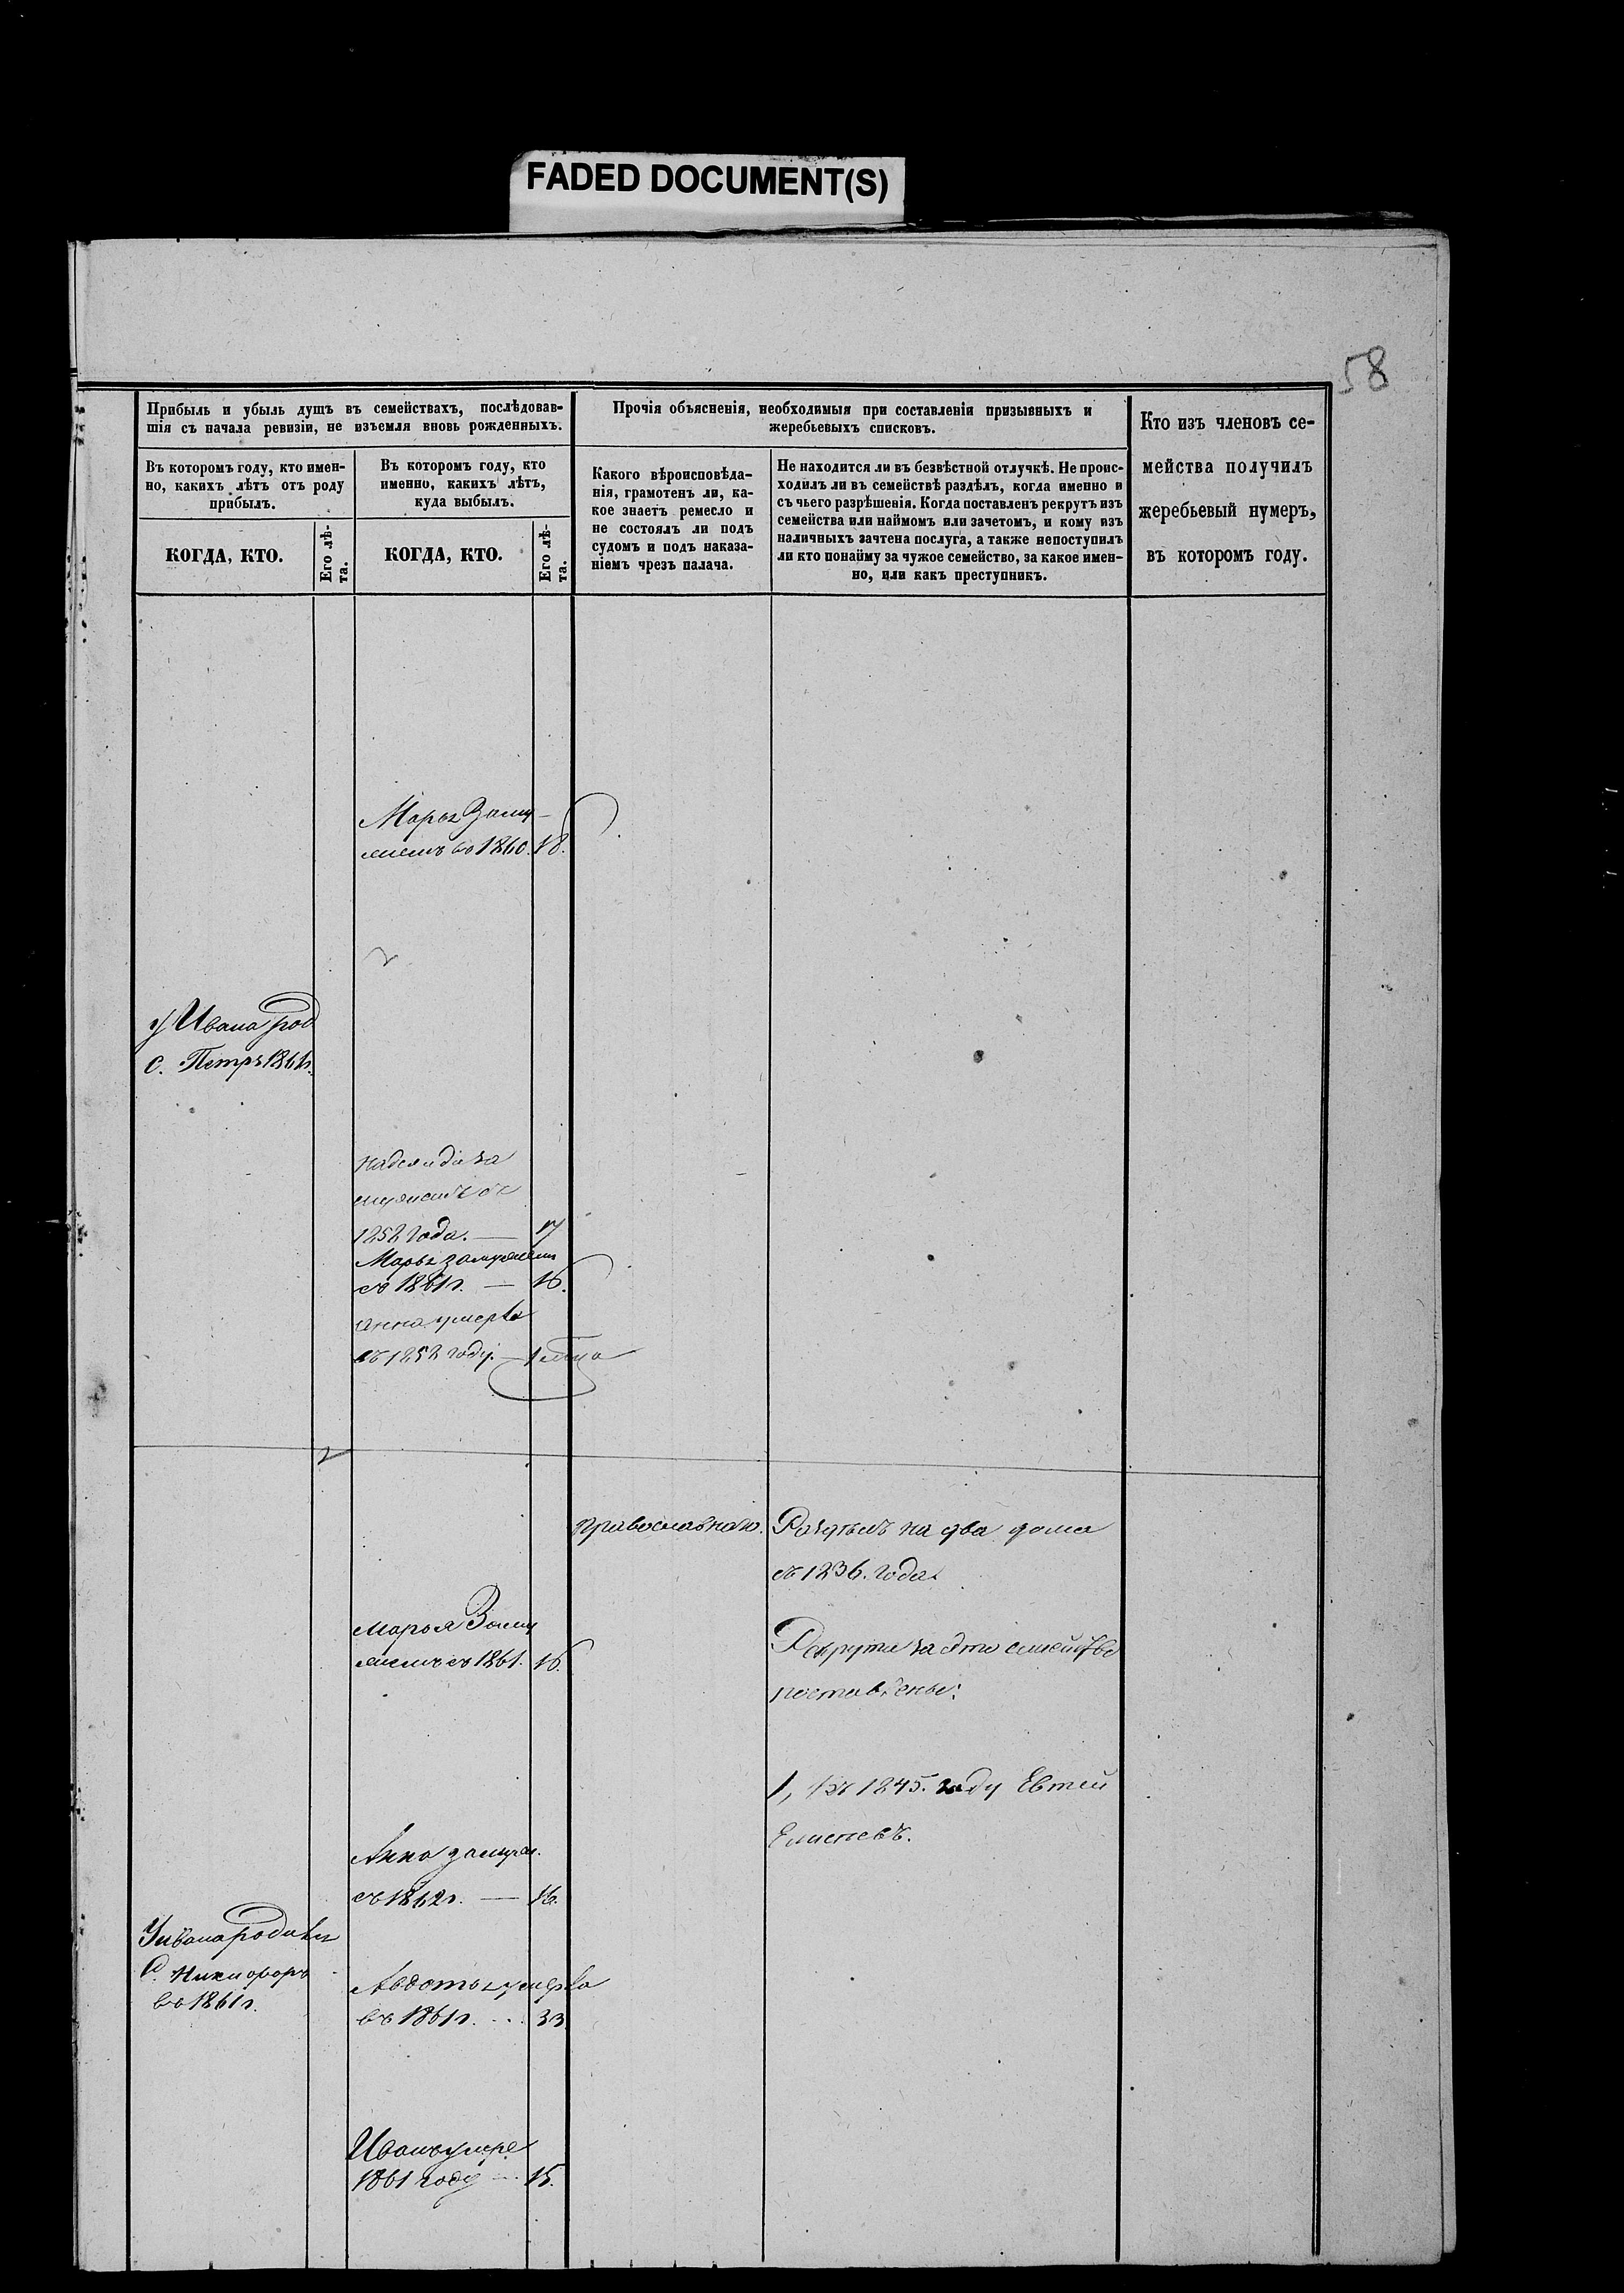 FADED DOCUMENT(S)
58
Прибыль и убыль душъ въ семействахъ, послѣдовав-
шія съ начала ревизіи, не изъемля вновь рожденныхъ.
Въ которомъ году, кто имен-
но, какихъ лѣтъ отъ роду
прибылъ.
КОГДА, КТО.
Его лѣ-
та.
Въ которомъ году, кто
именно, какихъ лѣтъ,
куда выбылъ.
КОГДА, КТО.
Его лѣ-
та.
Прочія объясненія, необходимыя при составленіи призывныхъ и
жеребьевыхъ списковъ.
Какого вѣроисповѣда-
нія, грамотенъ ли, ка-
кое знаетъ ремесло и
не состоялъ ли подъ
судомъ и подъ наказа-
ніемъ чрезъ палача.
Не находится ли въ безвѣстной отлучкѣ. Не проис-
ходилъ ли въ семействѣ раздѣлъ, когда именно и
съ чьего разрѣшенія. Когда поставленъ рекрутъ изъ
семейства или наймомъ или зачетомъ, и кому изъ
наличныхъ зачтена послуга, а также непоступилъ
ли кто понайму за чужое семейство, за какое имен-
но, или какъ преступникъ.
Кто изъ членовъ се-
мейства получилъ
жеребьевый нумеръ,
въ которомъ году.
Марья Заму-
жемъ съ 1860. 18.
У Ивана род
с. Петръ 1861г.
за
1858 года. — 17
Марья замужемъ
съ 1861г. — 16.
Анна умерла
въ 1858 году. —
православнаго.
Раздѣлъ на два дома
съ 1836. года
Марья Заму
жемъ съ 1861. 16.
Рекруты за это семейство
поставлены:
1, въ 1845. году Евтей
Анна замуж.
съ 1862г. — 16.
У Ивана родился
С. Никифоръ
въ 1861г.
Авдотья умерла
въ 1861г. 33
Иванъ умре
1861 году — 15.